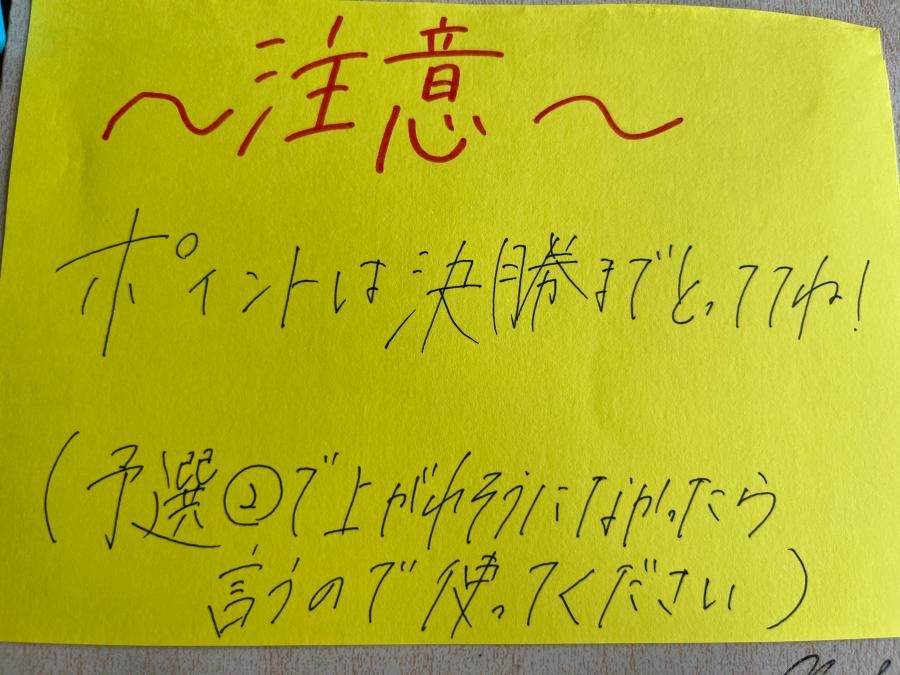 ～注意～
ポイントは決勝までとっててね!
(予選②で上がれそうになかったら
言うので使ってください)